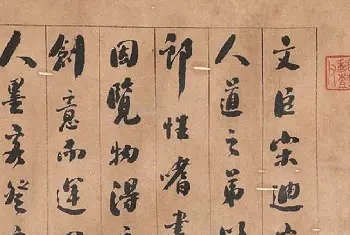 文臣宋迪
人道之弟以
郎性嗜畫
因覽物得
創意而運
人墨客